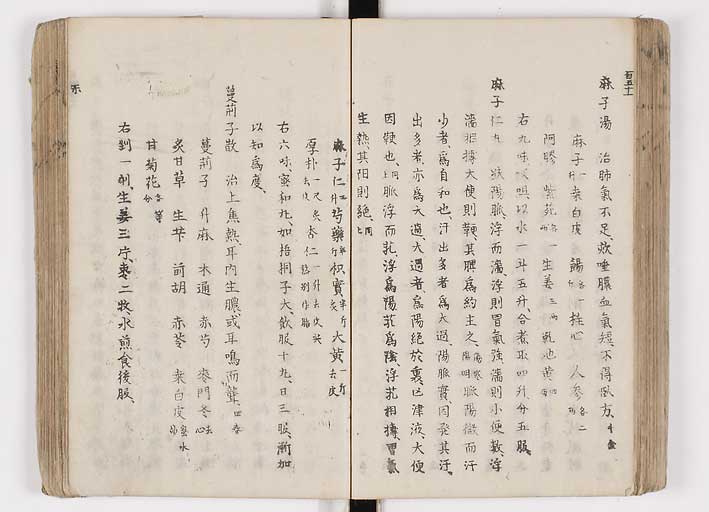 百五十
麻子湯 治肺氣不足、咳唾膿血氣短、不得臥方、千金
麻子一升 桑白皮 餳各一 桂心 人參各二
阿膠 紫菀各一 生姜三兩 乾地黃四
右九味㕮咀以水一斗五升、合煮取四升、分五服、
麻子仁丸 趺陽脈浮而濇、浮則胃氣強濇則小便數、浮
濇相摶大便則鞕、其脾為約主之、傷寒 陽明 脈陽微而汗
少者、為自和也、汗出多者為太過、陽脈實、因發其汗、
出多者、亦為太過、太過者、為陽絕於裏、亡津液、大便
因鞕也、同上 脈浮而芤、浮為陽、芤為陰浮芤相摶、胃氣
生熱其陽則絕、同上
麻子仁二升 芍藥半斤 枳實半斤炙 大黃一斤去皮
厚朴一尺炙去皮 杏仁一升去皮尖
右六味蜜和丸、如梧桐子大、飲服十丸、日三服、漸加
以知為度、
蔓荊子散 治上焦熱、耳內生膿、或耳鳴而聾、
蔓荊子 升麻 木通 赤芍 麥門冬去心
炙甘草 生芐 前胡 赤苓 桑白皮
甘菊花各等分
右剉一劑、生姜三片、棗二枚、水煎食後服、